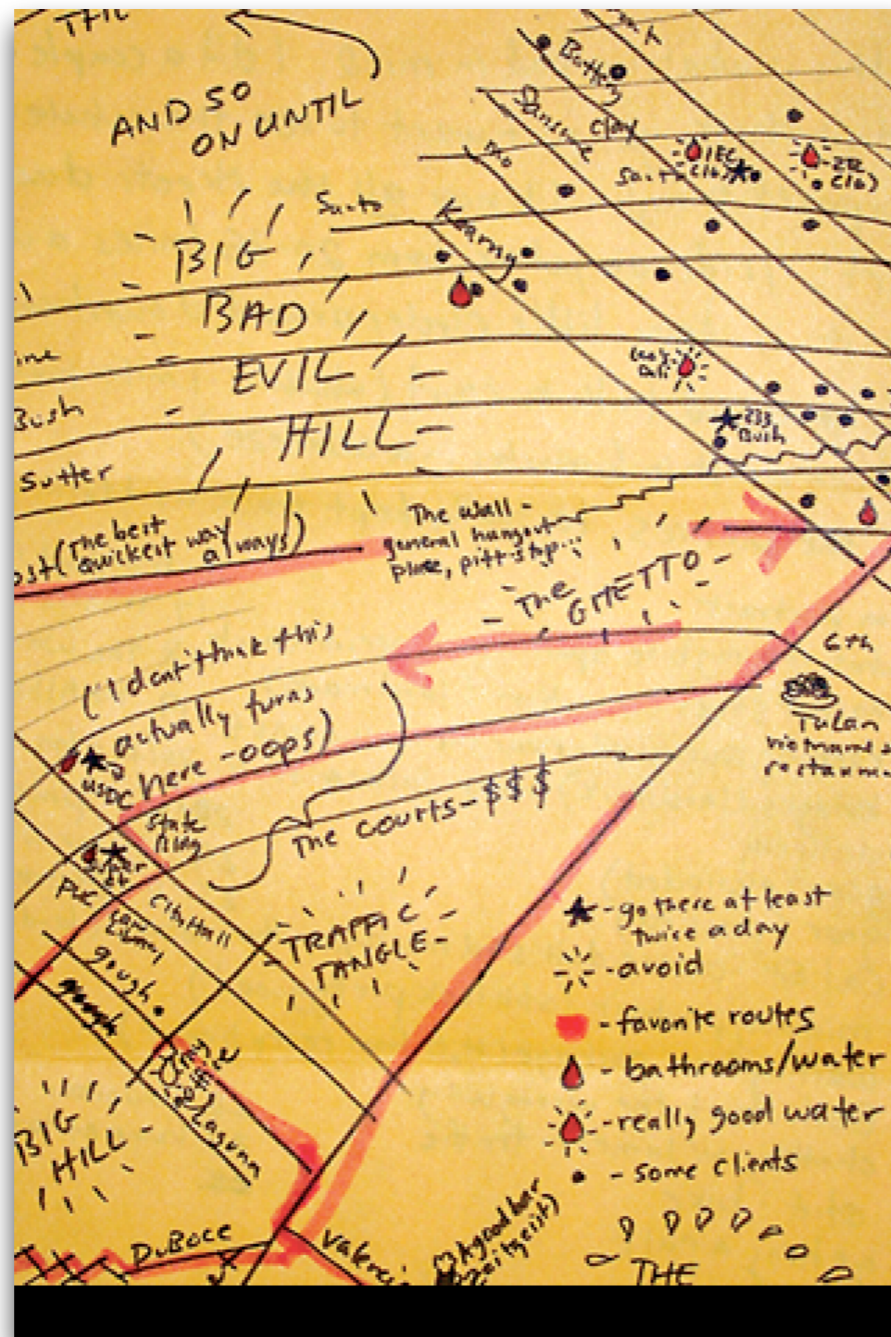 THE
AND SO
ON UNTIL
Battery
Sansome
Clay
Kearny
BIG
BAD
EVIL
HILL
ine
Bush
Sutter
1EC
(16)
2EC
(16)
233
Bush
ost (The best
quickest way
always)
The wall -
general hangout
place, pitt-stop...
The
GHETTO
6th
Tulan
vietnames
restauran
(I don't think this
actually turns
here - oops)
USDC
State
Bldg
The courts - $$$
PUC
City Hall
Library
gough
TRAFFIC
TANGLE
Laguna
BIG
HILL
DuBoce
Valenci
(A good bar
zeitgeist)
- go there at least
twice a day
- avoid
- favorite routes
- bathrooms/water
- really good water
- some clients
THE